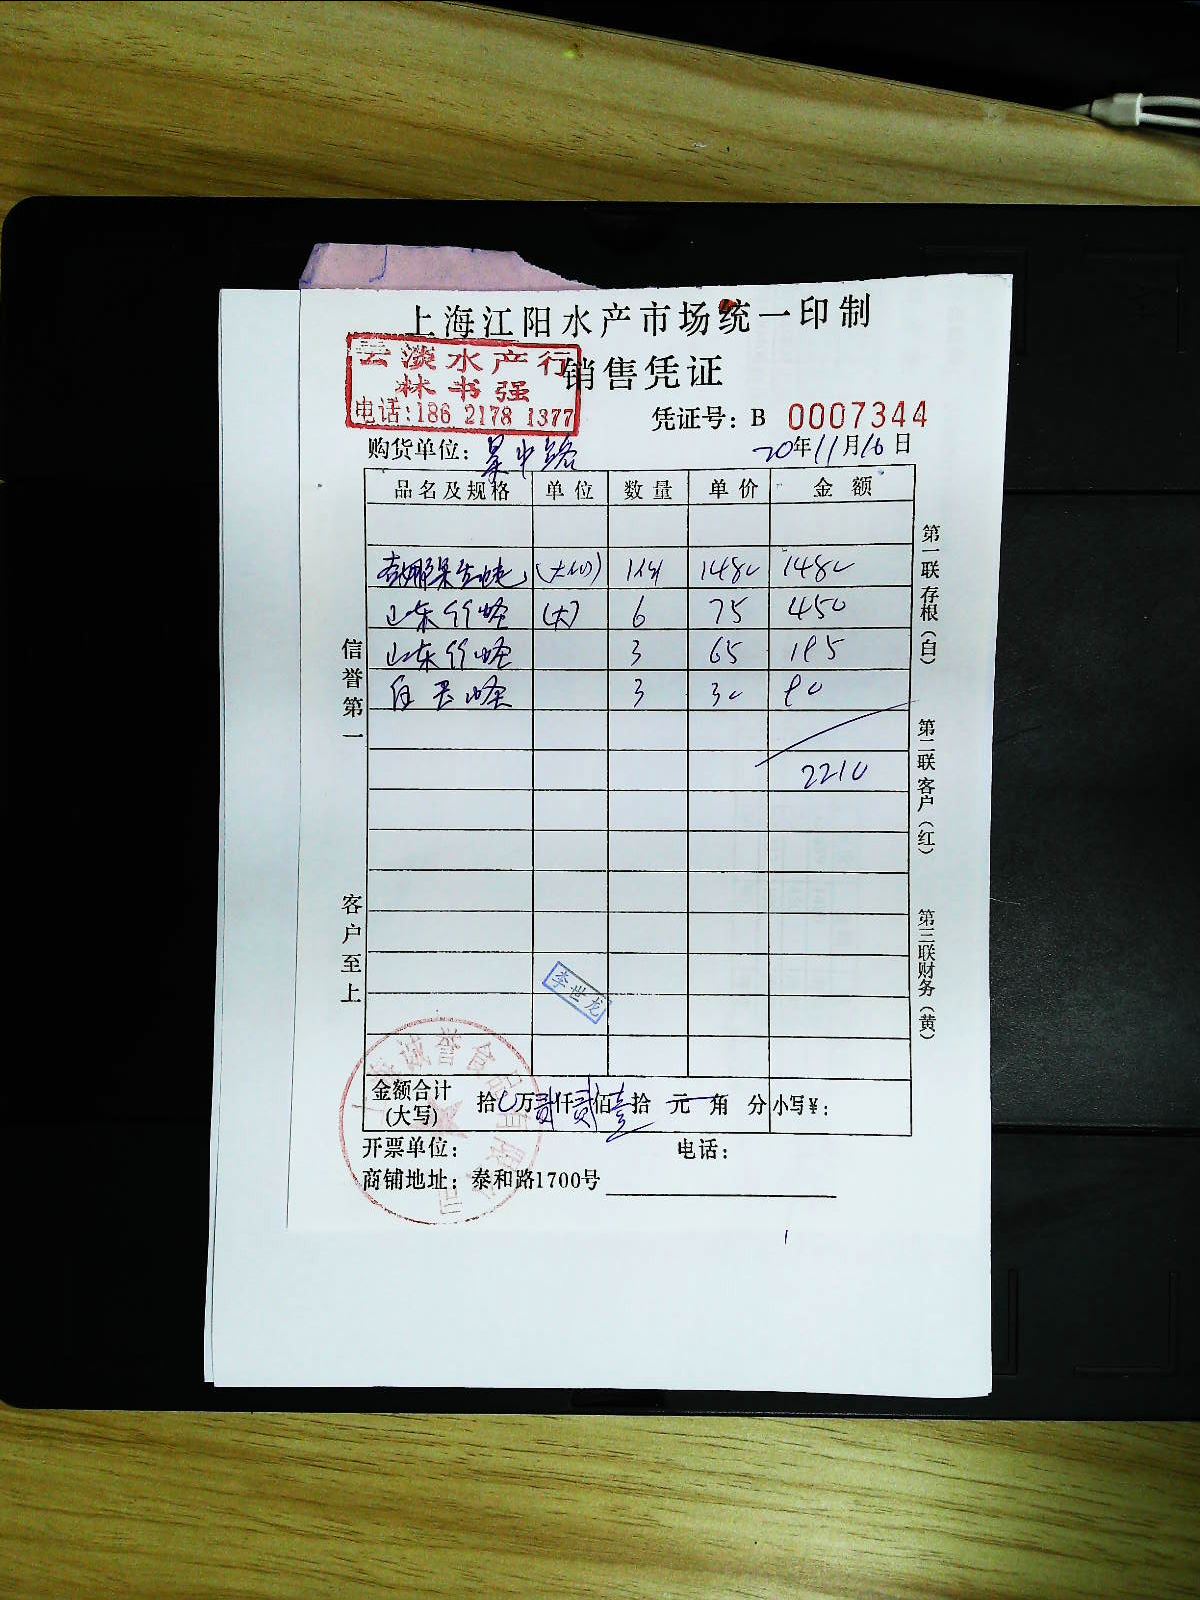 上海江阳水产市场统一印制
销售凭证
云淡水产行
林书强
电话:186 2178 1377
凭证号: B 0007344
购货单位: 吴中路
20年11月16日
品名及规格 单位 数量 单价 金额
1480 1480
山东竹蛏 (大) 6 75 450
山东竹蛏 3 65 195
3 30 90
2210
信誉第一
客户至上
第一联存根(白)
第二联客户(红)
第三联财务(黄)
李世龙
诚誉食品有限公司
金额合计(大写) 拾 万贰仟贰佰壹拾 元 角 分 小写¥:
开票单位: 电话:
商铺地址: 泰和路1700号